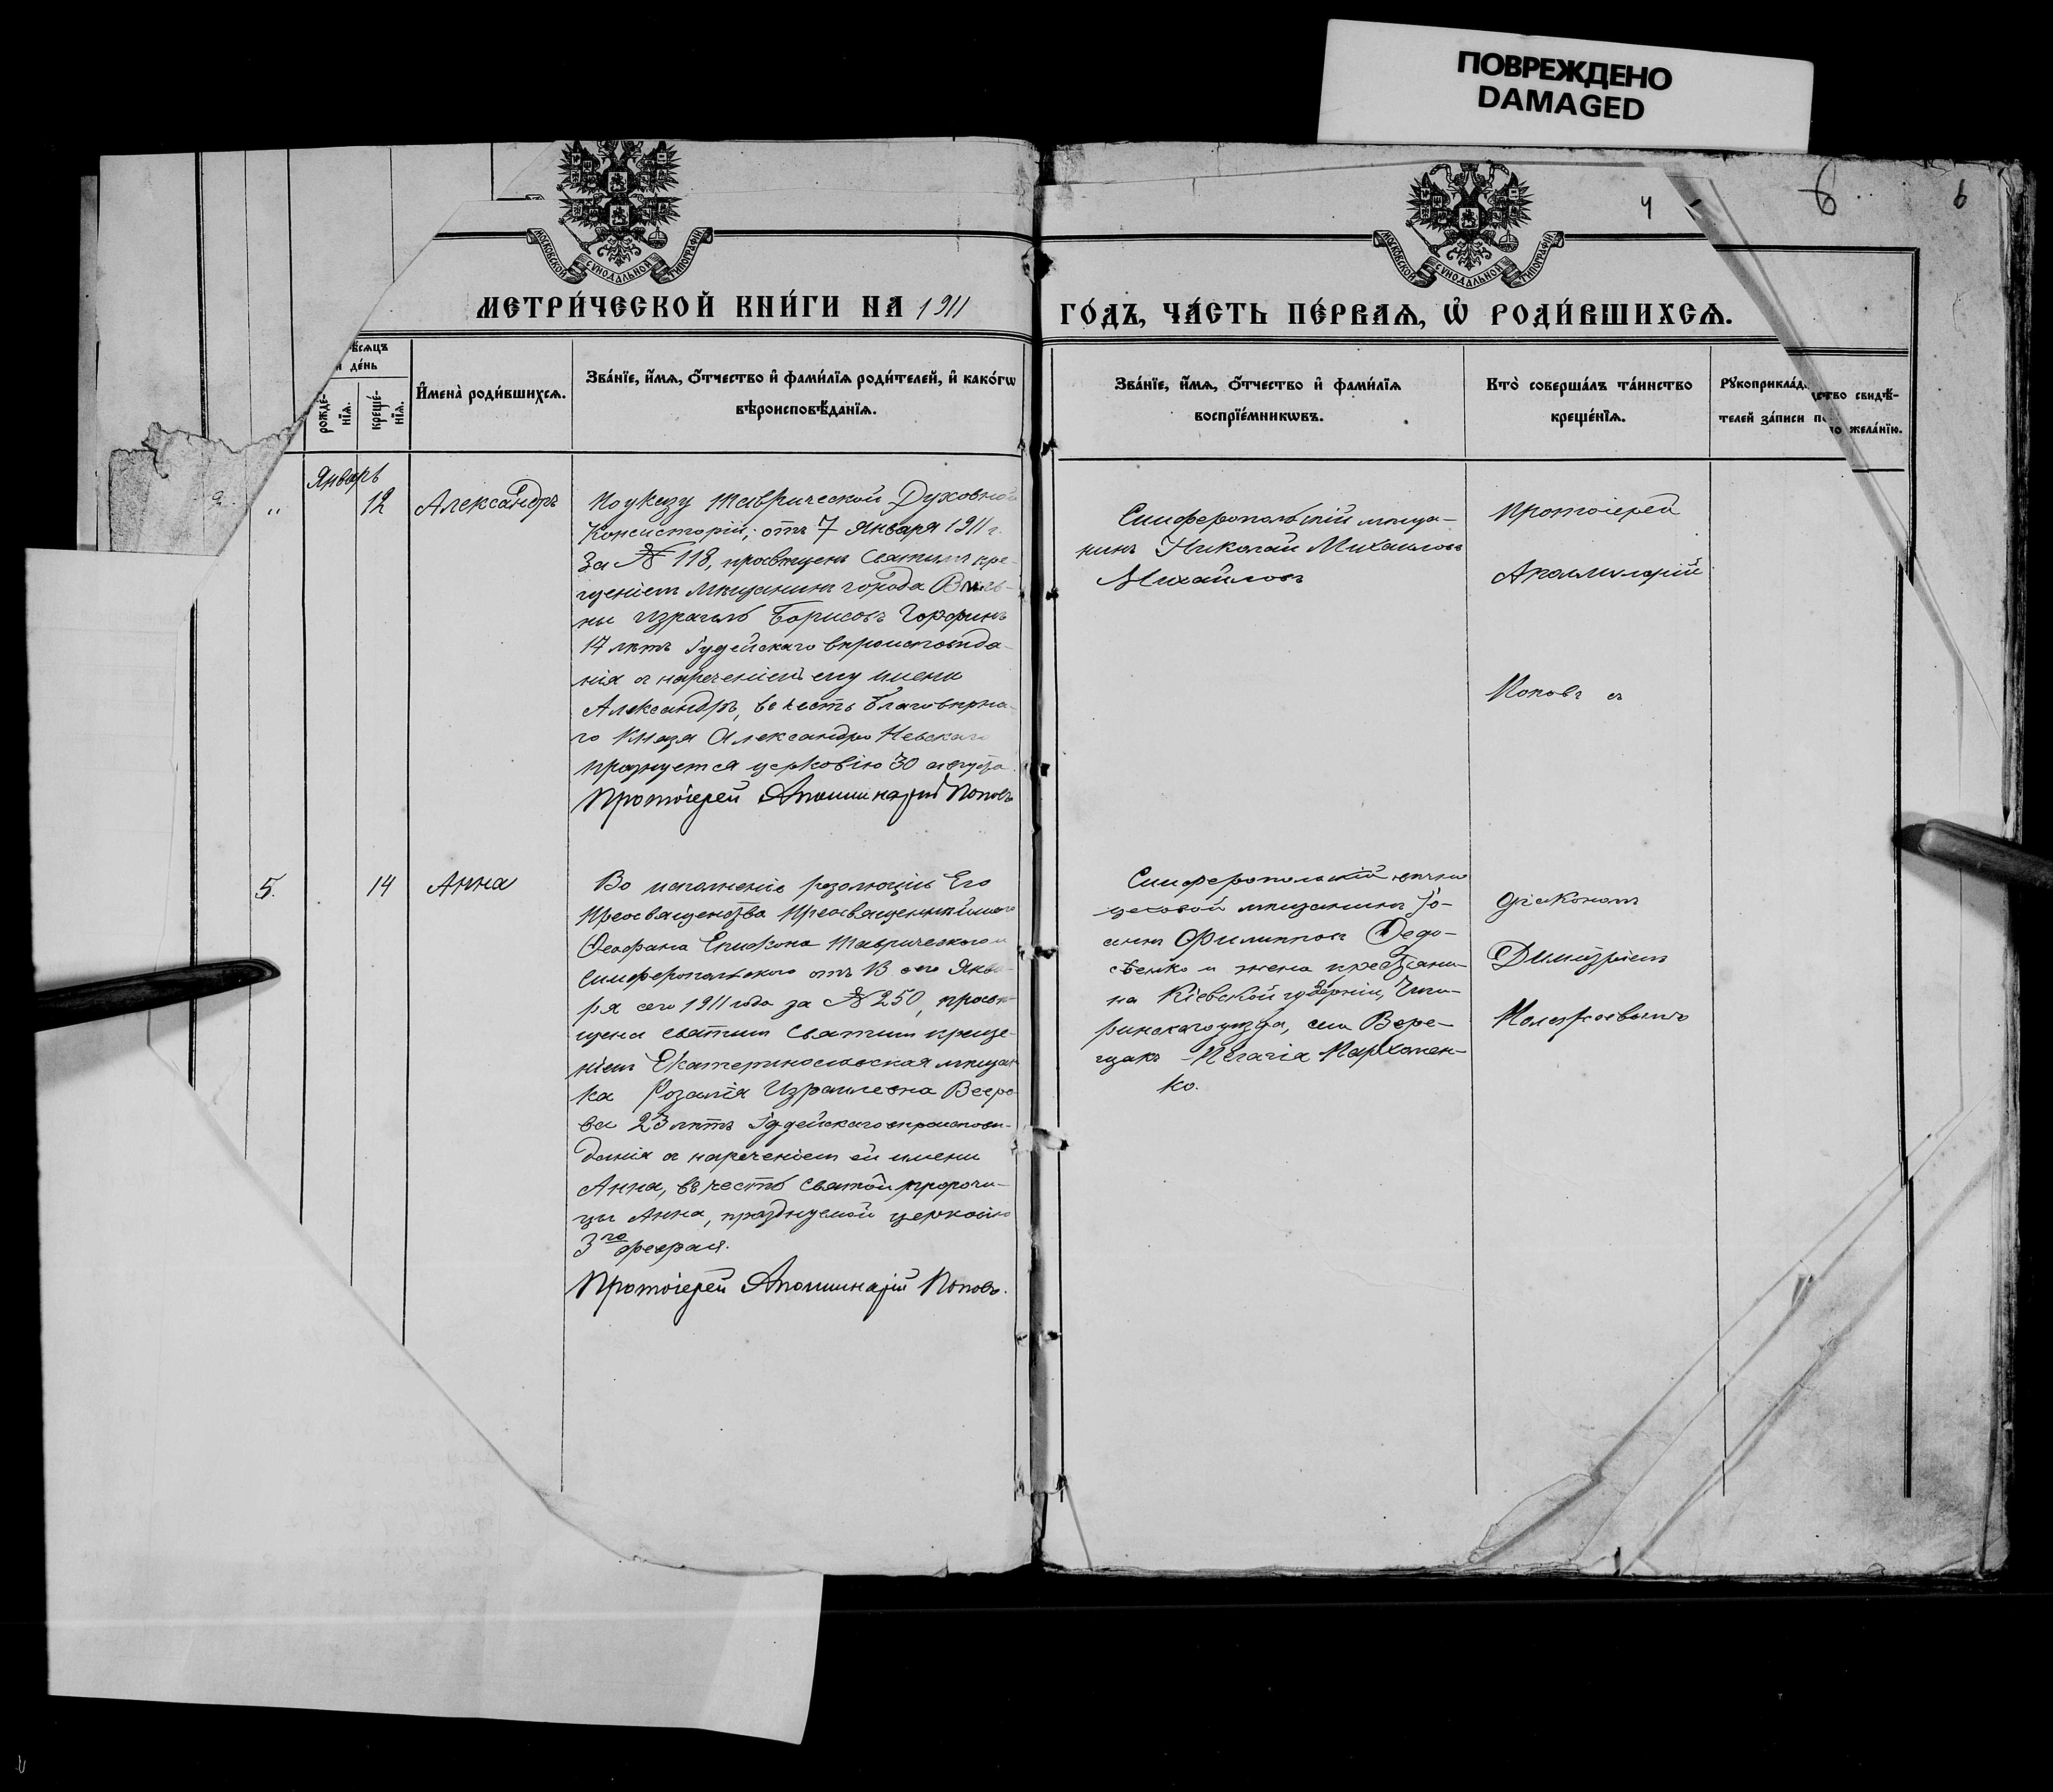 ПОВРЕЖДЕНО
DAMAGED
4
6
6
МОСКОВСКОЙ СѴНОДАЛЬНОЙ ТИПОГРАФІИ
МОСКОВСКОЙ СѴНОДАЛЬНОЙ ТИПОГРАФІИ
МЕТРИ́ЧЕСКОЙ КНИ́ГИ НА 1911
ГО́ДЪ, ЧА́СТЬ ПЕ́РВАѦ, Ѽ РОДИ́ВШИХСѦ.
ѣсѧцъ
и де́нь
рожде-
нїѧ.
креще́-
нїѧ.
И҆мена̀ роди́вшихсѧ.
Зва́нїе, и҆́мѧ, ѻ҆́тчество и҆ фами́лїѧ роди́телей, и҆ како́гѡ
вѣроисповѣ́данїѧ.
Зва́нїе, и҆́мѧ, ѻ҆́тчество и҆ фами́лїѧ
воспрїе́мникѡвъ.
Кто̀ соверша́лъ та́инство
креще́нїѧ.
Рꙋкоприкла́д ство свидѣ́-
телей за́писи по жела́нїю.
Январь
„
12
Александръ
По указу Таврической Духовной
Консисторіи, отъ 7 Января 1911 г.
За № 118, просвѣщенъ Святымъ кре-
щеніемъ мѣщанинъ города Виль-
ны Израиль Борисовъ Горфинъ
17 лѣтъ Іудейскаго вѣроисповѣда-
нія съ нареченіемъ ему имени
Александръ, въ честь Благовѣрна-
го Князя Александра Невскаго
празнуется церковію 30 августа.
Протоіерей Аполлинарій Поповъ
Симферопольскій мѣща-
нинъ Николай Михаиловъ
Михайловъ
Протоіерей
Аполлинарій
Поповъ съ
5.
14
Анна
Во исполненіе резолюціи Его
Преосвященства Преосвященнѣйшаго
Ѳеофана Епископа Таврическаго и
Симферопольского отъ 13 сего Янва-
ря сего 1911 года за № 250, просвѣ-
щена святымъ Святымъ креще-
ніемъ Екатеринославская мѣщан
ка Розалія Израилевна
ва 23 лѣтъ Іудейскаго вѣроисповѣ-
данія съ нареченіемъ ей имени
Анна, въ честь Святой пророчи-
цы Анна, празднуемой церковію
3го февраля.
Протоіерей Аполлинарій Поповъ.
Симферопольскій вѣчно
цеховой мѣщанинъ Іо-
аннъ Филипповъ Ѳедо-
сѣенко и жена крестьяни-
на Кіевской губерніи, Чиги-
ринскаго уѣзда, села Вере-
щакъ - Пелагія Пархомен-
ко.
Діакономъ
Димитріемъ